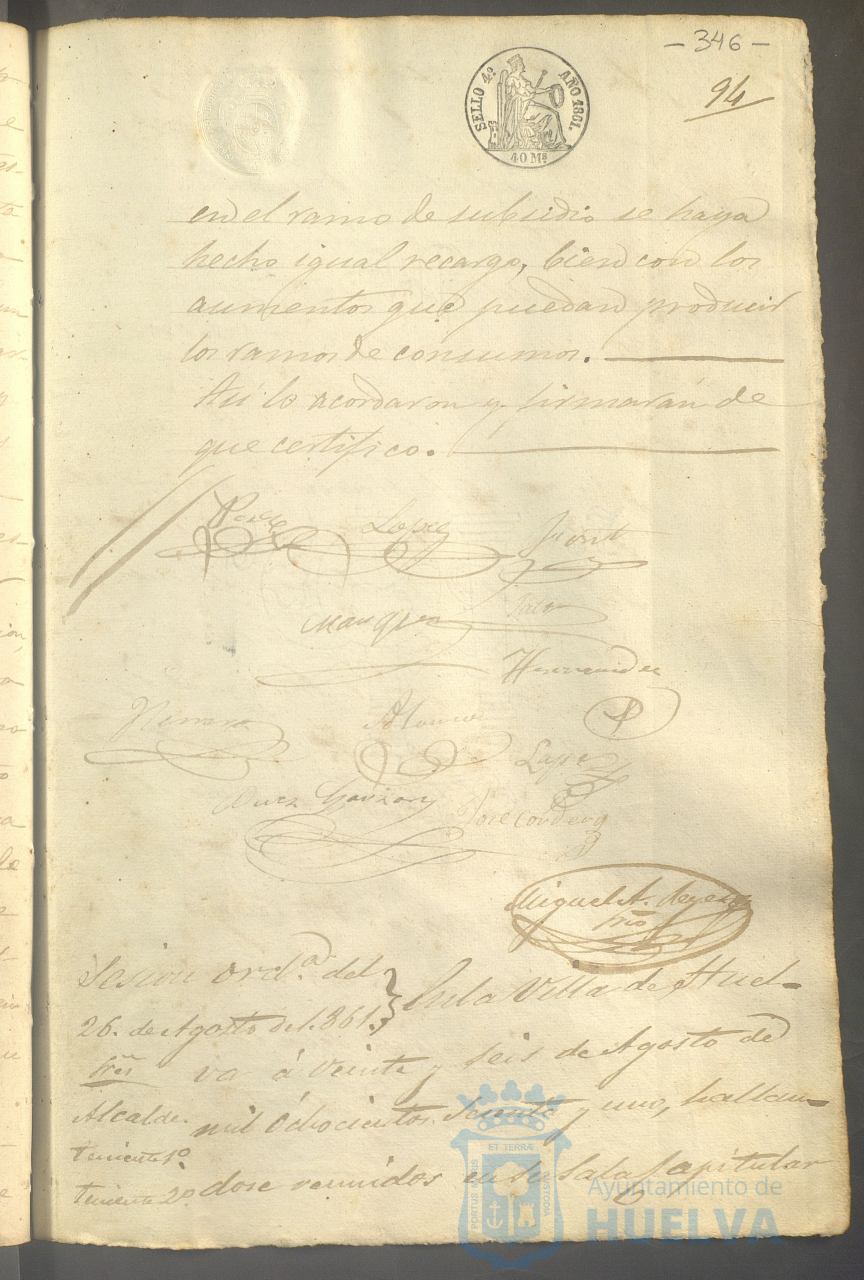 - 346 -
94
SELLO 4º AÑO 1861.
40 Mˢ
en el ramo de subsidio se haya
hecho igual recargo, bien con los
aumentos que puedan producir
los ramos de consumos.
Así lo acordaron y firmarán de
que certifico.
Lopez
Marquez
Hernandez
Alonso
Lopez
Jose Cordero
Miguel A. Reyes
Srio
Sesion ordª. del
26. de Agosto del.861.
En la Villa de Huel-
Sres
va á veinte y seis de Agosto de
Alcalde.
mil ochocientos sesenta y uno, hallan-
teniente 1º
teniente 2º
dose reunidos en su Sala Capitular
ET TERRÆ
PORTUS MARIS
CUSTODIA
Ayuntamiento de
HUELVA